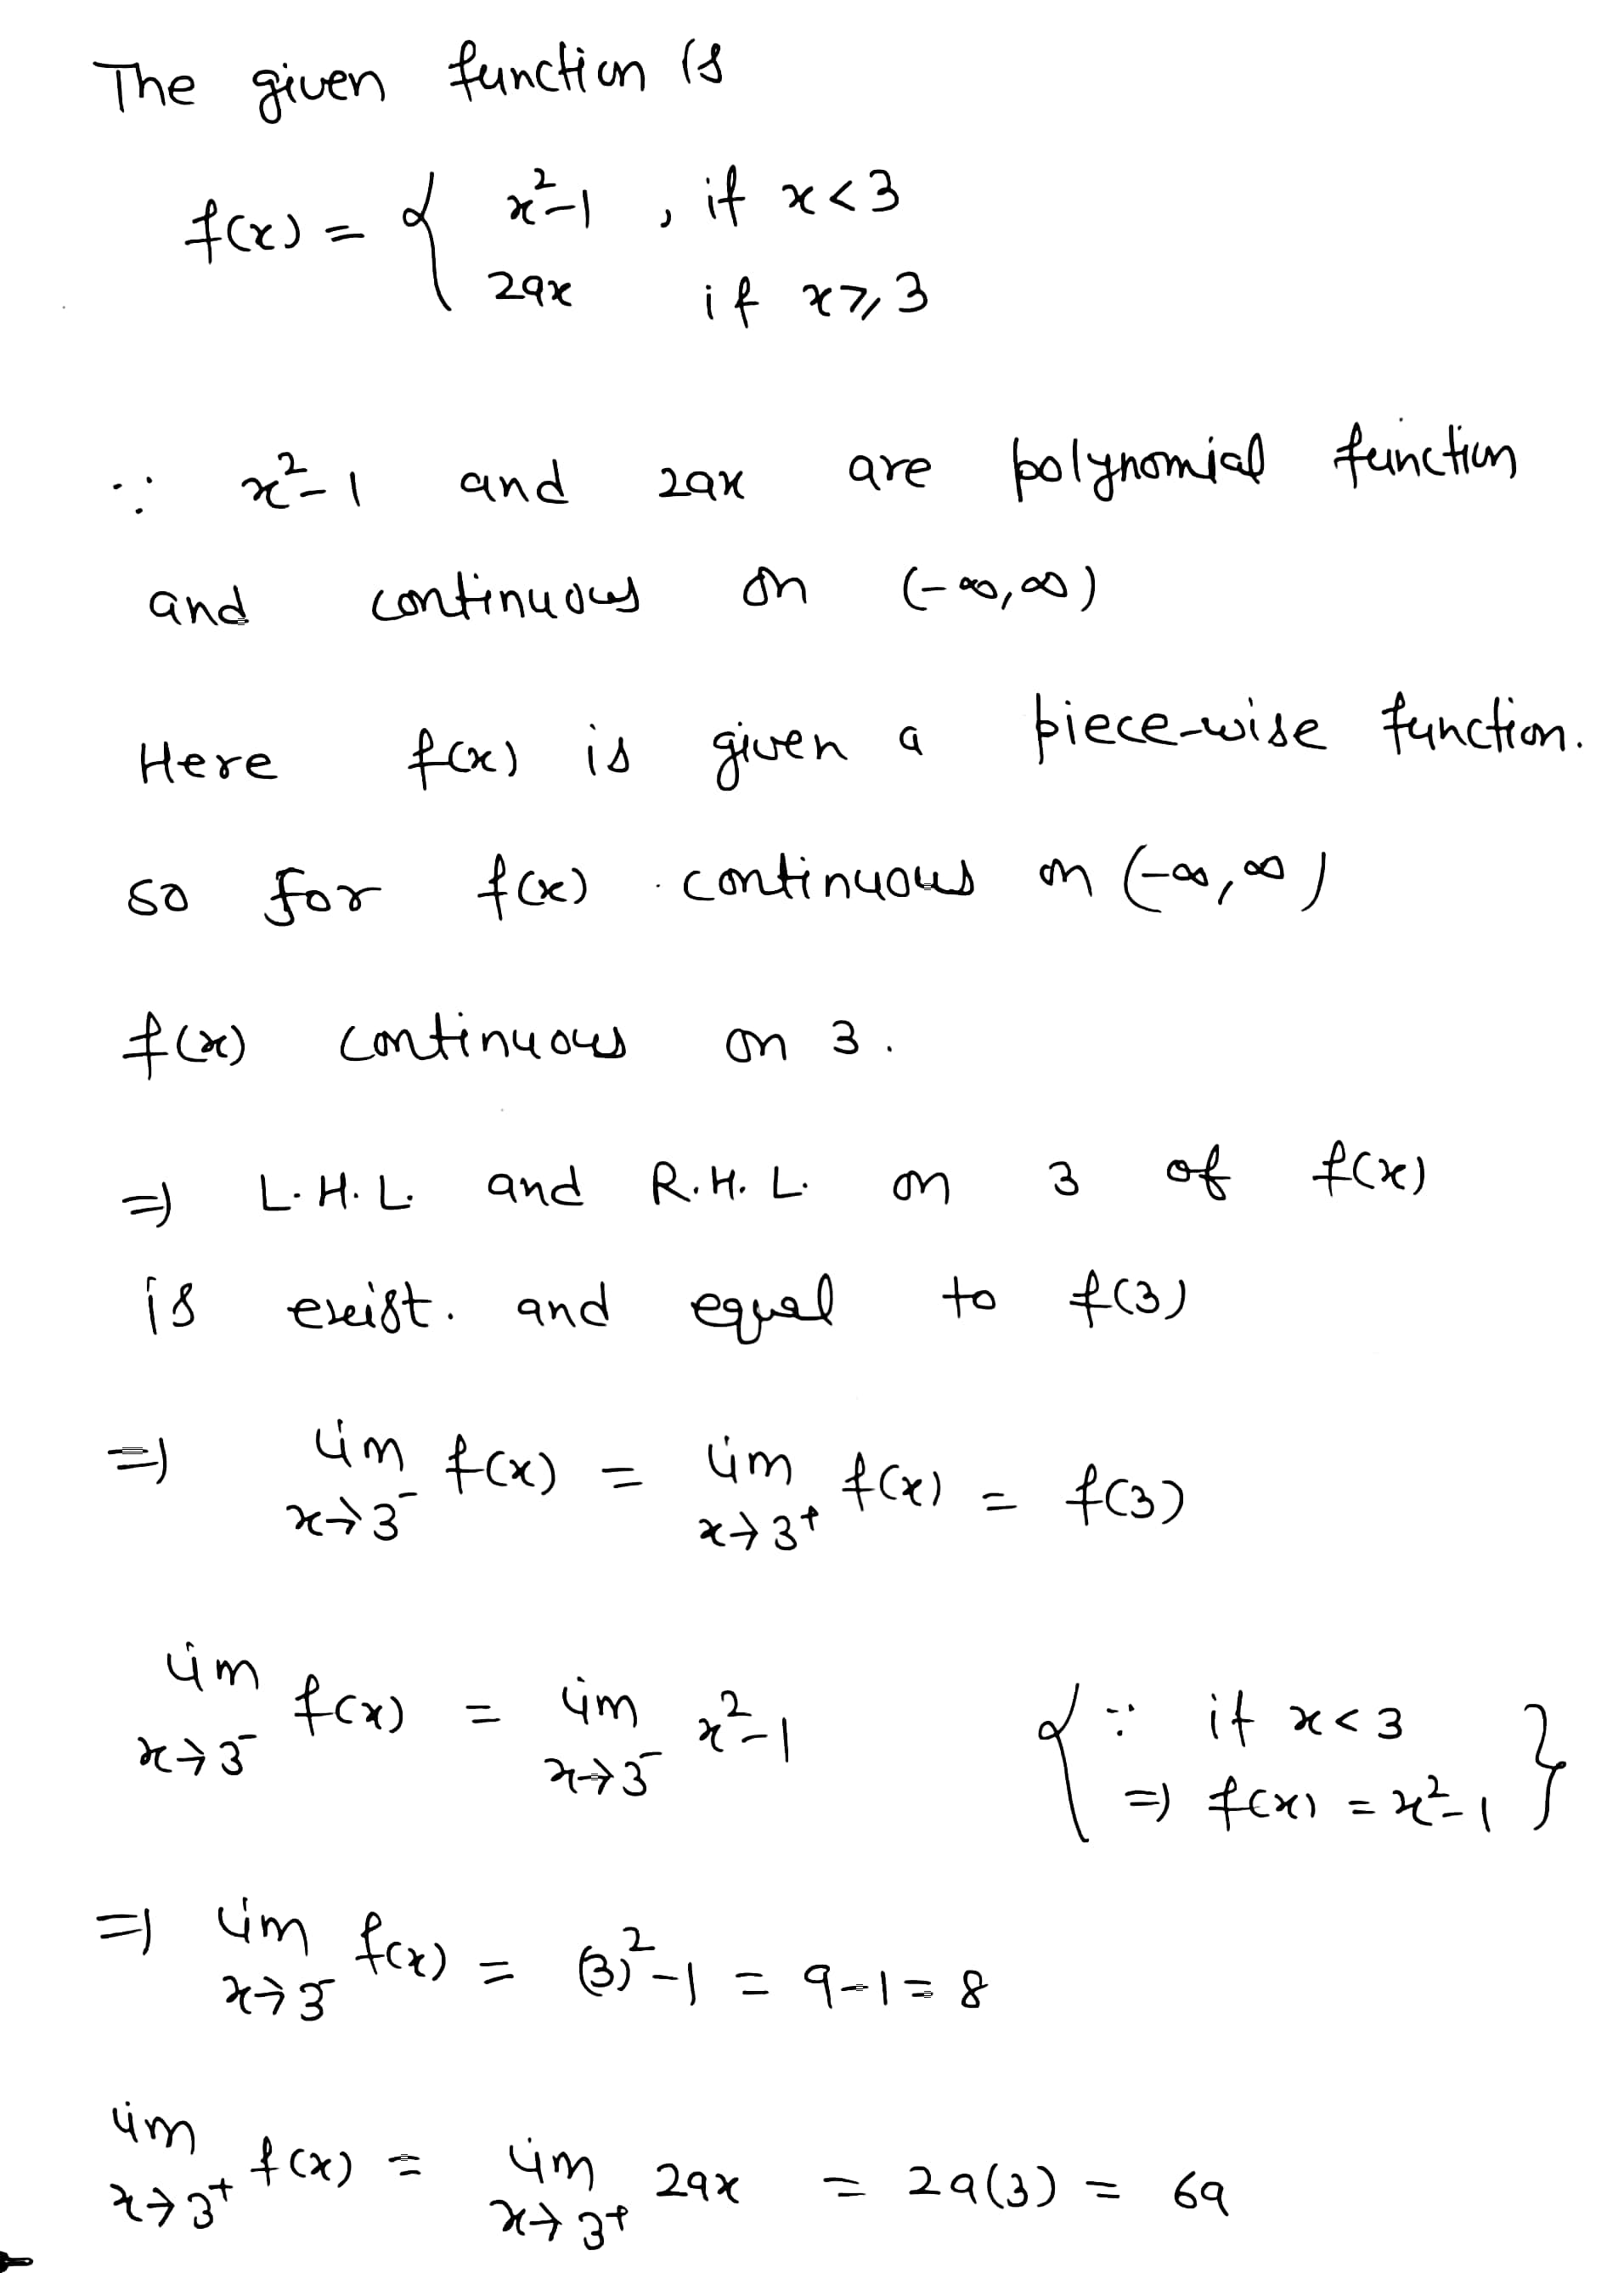 The given function is
f(x) = { x²-1 , if x<3
2ax if x⩾3
∵ x²-1 and 2ax are polynomial function
and continuous on (-∞,∞)
Here f(x) is given a piece-wise function.
so for f(x) continuous on (-∞,∞)
f(x) continuous on 3.
⇒ L.H.L. and R.H.L. on 3 of f(x)
is exist. and equal to f(3)
⇒ lim x→3⁻ f(x) = lim x→3⁺ f(x) = f(3)
lim x→3⁻ f(x) = lim x→3⁻ x²-1 { ∵ if x<3 ⇒ f(x) = x²-1 }
⇒ lim x→3⁻ f(x) = (3)²-1 = 9-1 = 8
lim x→3⁺ f(x) = lim x→3⁺ 2ax = 2a(3) = 6a